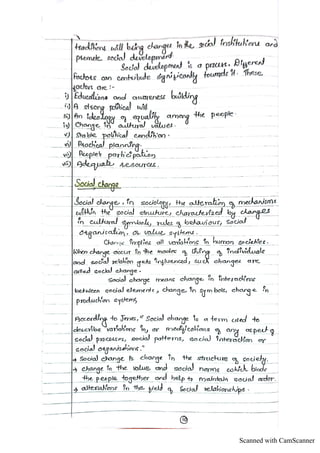 traditions will bring changes in the social institutions and
promote social development.
Social development is a process. Different
factors can contribute significantly towards it. These
factors are:-
i) Education and awareness building
ii) A strong political will
iii) An ideology of equality among the people.
iv) Change in cultural values.
v) Stable political condition.
vi) Practical planning.
vii) People's participation
viii) Adequate resources.
Social change
Social change, in sociology, the alteration of mechanisms
within the social structure, characterized by changes
in cultural symbols, rules of behaviour, social
organization, or value systems.
Change implies all variations in human societies.
When change occur in the modes of living of individuals
and social relation gets influenced, such changes are
called social change.
Social change means change in interactions
between social elements, change in symbols, change in
production systems
According to Jones, "Social change is a term used to
describe variations in, or modifications of any aspect of
social processes, social patterns, social interaction or
social organisations."
→ Social change is change in the structure of society.
→ change in the value and social norms which binds
the people together and help to maintain social order.
→ alterations in the field of social relationships.
Scanned with CamScanner